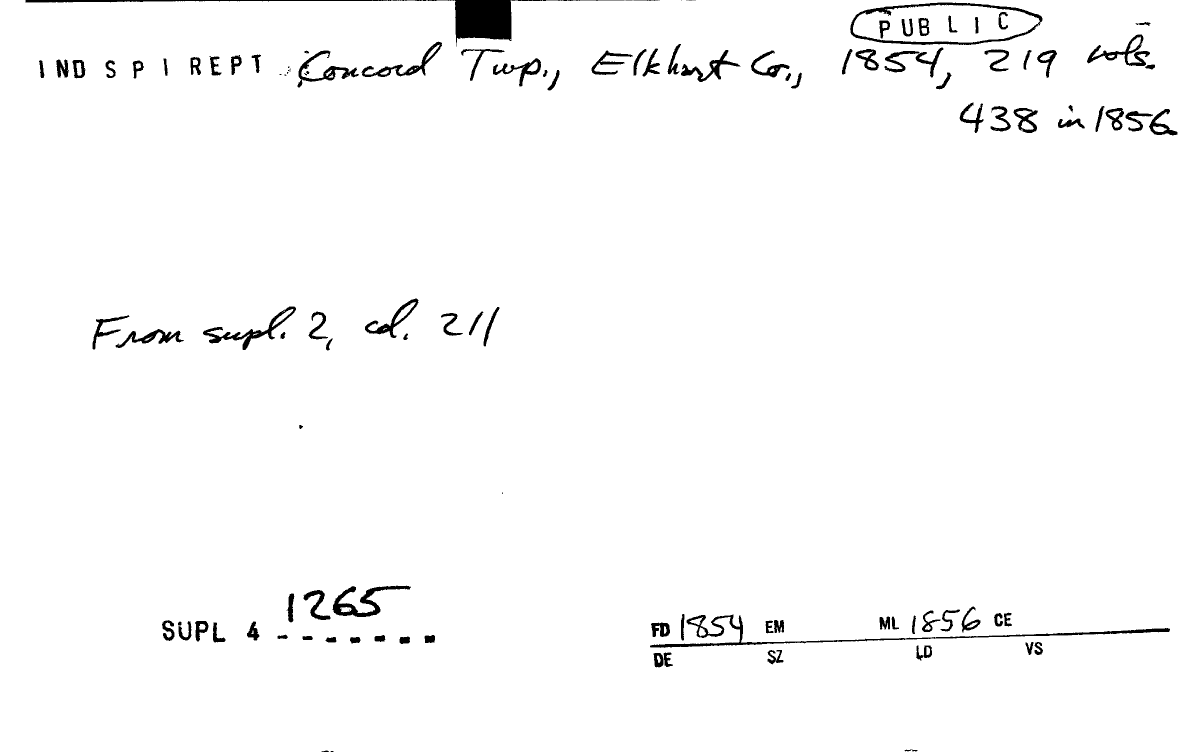 PUBLIC
IND SPI REPT Concord Twp., Elkhart Co., 1854, 219 vols.
438 in 1856
From supl. 2, col. 211
SUPL 4 1265
FD 1854 EM ML 1856 CE
DE SZ LD VS